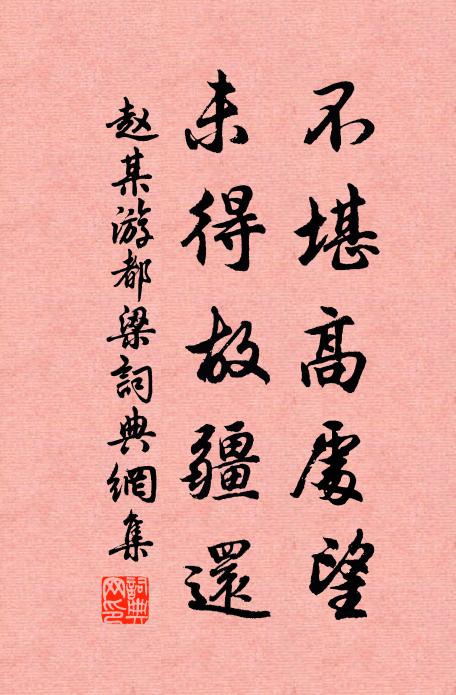 不堪高處望
未得故疆還
赵某游都梁詞典網集
詞典網印